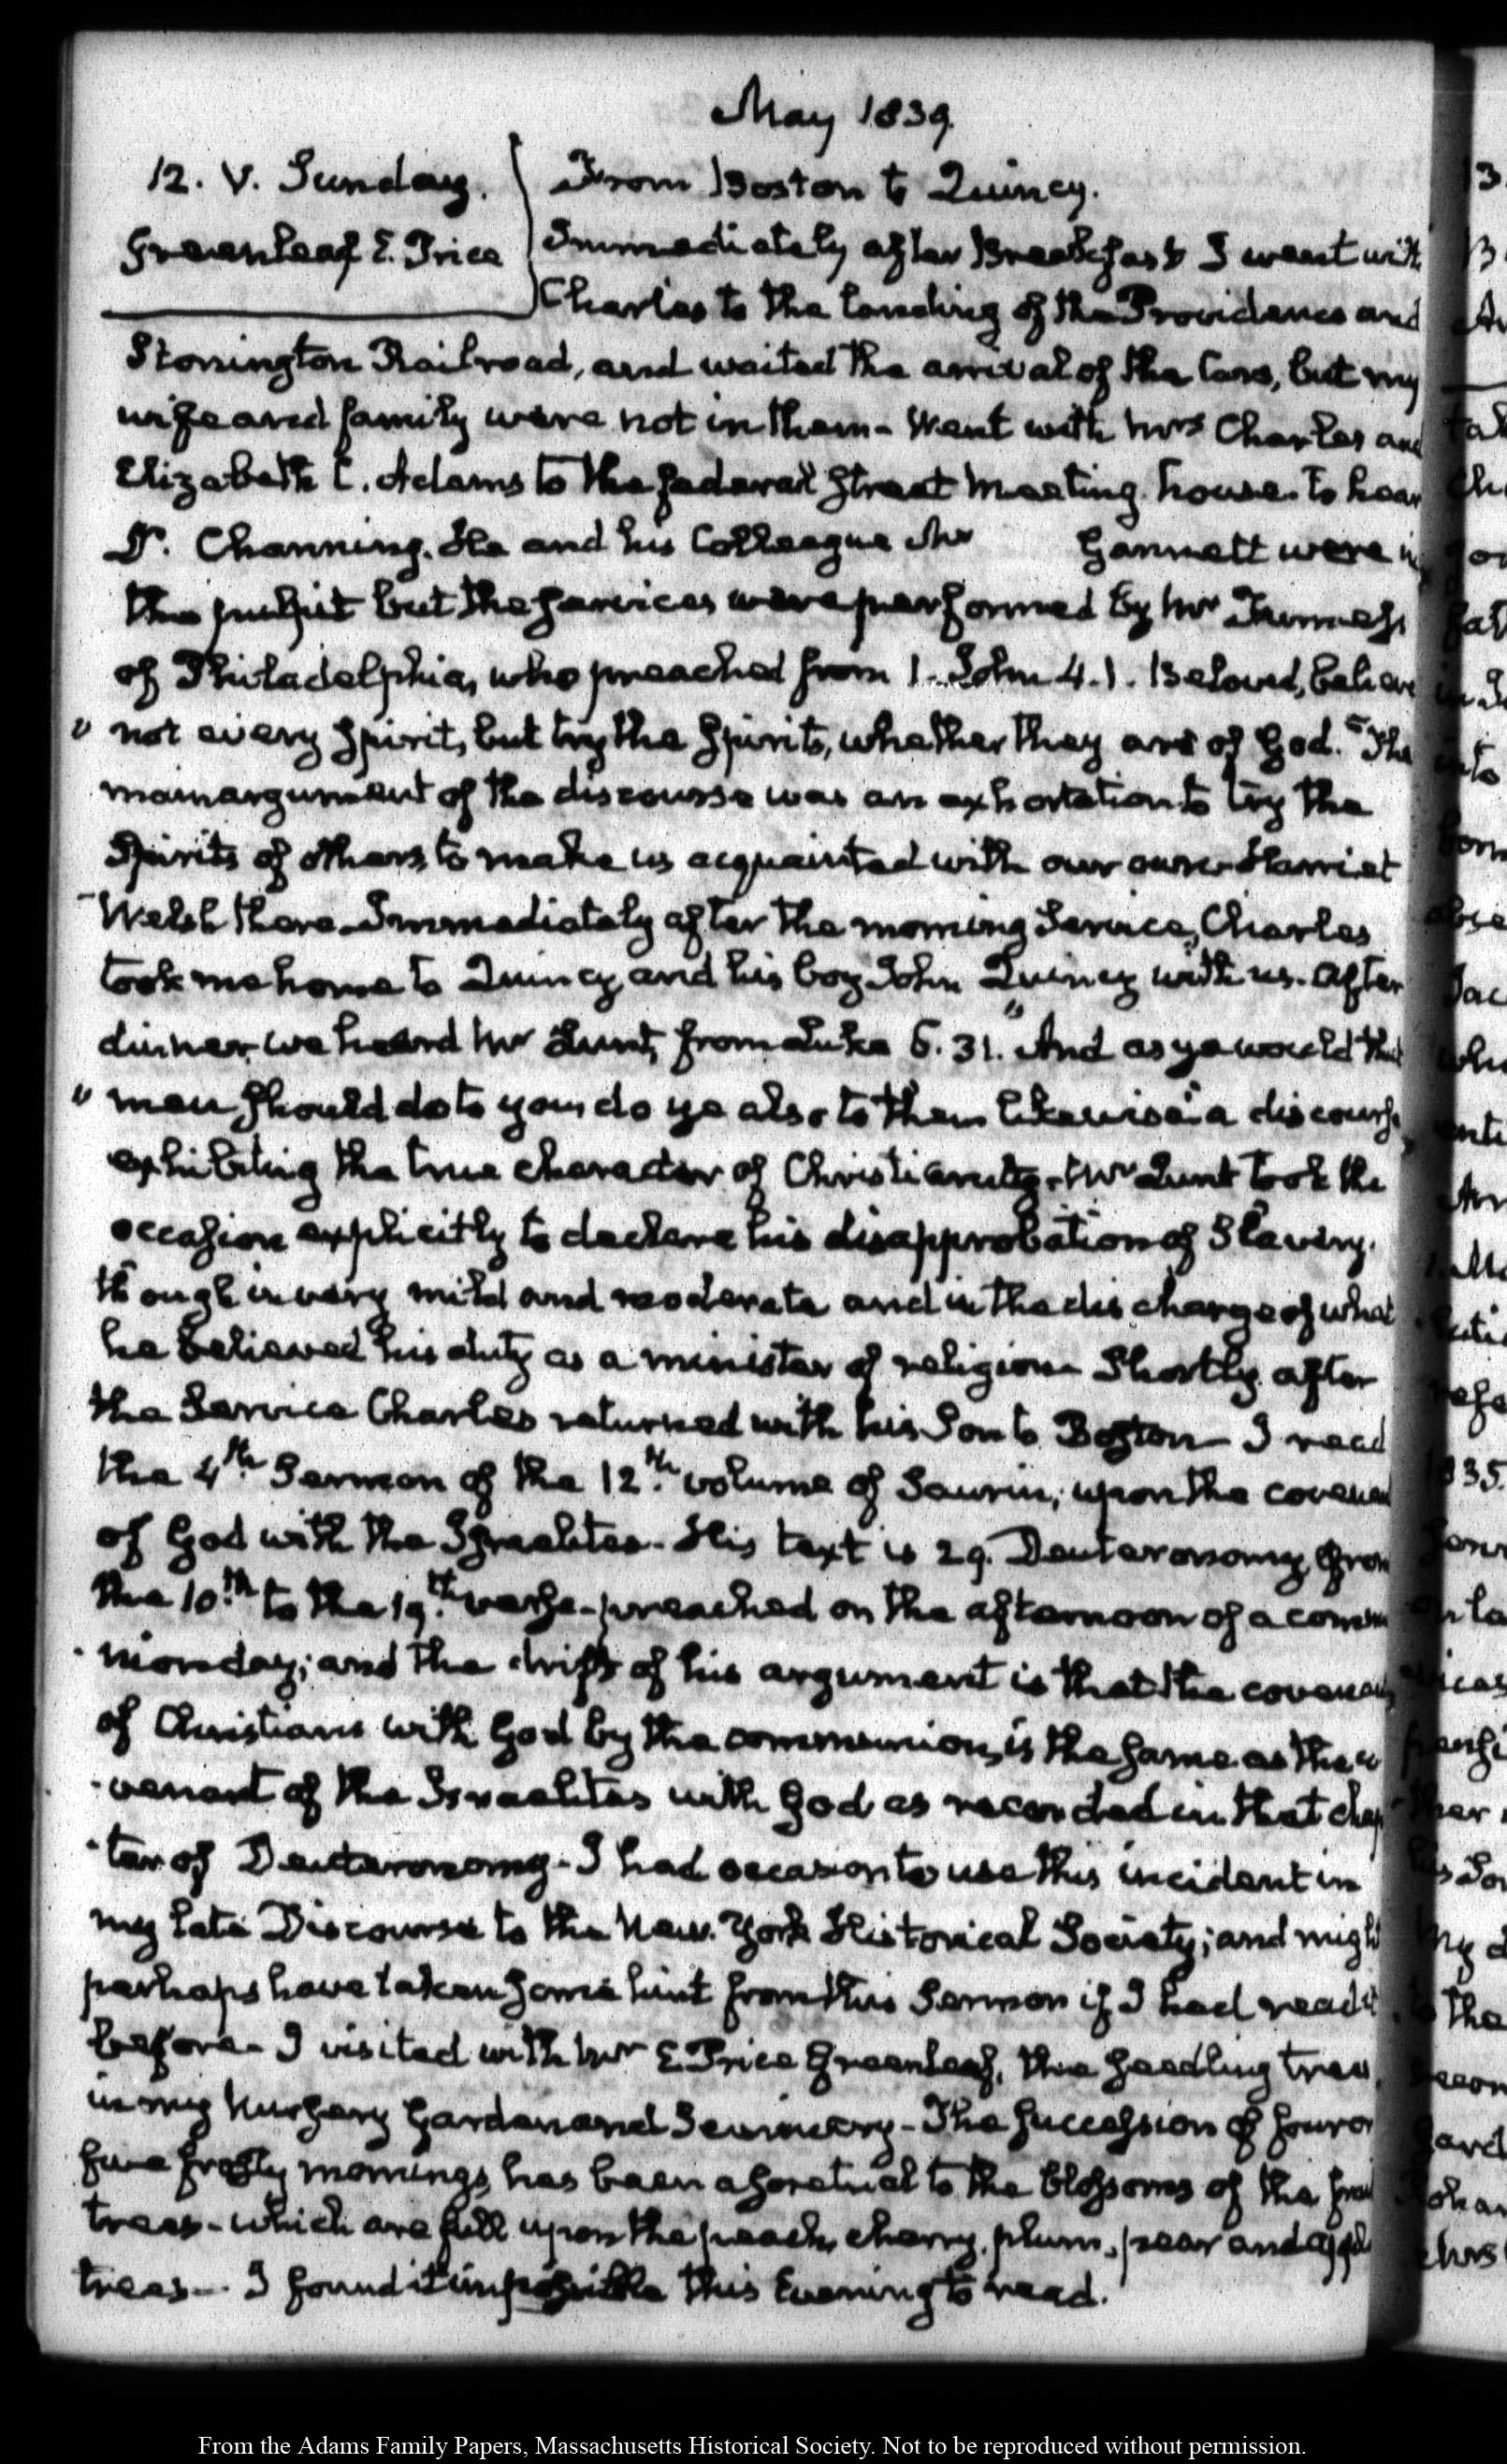 May 1839.
12. V. Sunday.
Greenleaf E. Price
From Boston to Quincy.
Immediately after Breakfast I went with
Charles to the landing of the Providence and
Stonington Railroad, and waited the arrival of the Cars, but my
wife and family were not in them - Went with Mrs Charles and
Elizabeth C. Adams to the Federal Street Meeting house to hear
Dr. Channing. He and his Colleague Mr Gannett were in
the pulpit but the services were performed by Mr Furness
of Philadelphia, who preached from 1. John 4.1. Beloved, believe
" not every Spirit, but try the Spirits, whether they are of God." The
main argument of the discourse was an exhortation to try the
Spirits of others to make us acquainted with our own - Harriet
Welsh there - Immediately after the morning Service, Charles
took me home to Quincy, and his boy John Quincy with us. After
dinner we heard Mr Lunt, from Luke 6.31. "And as ye would that
" men should do to you, do ye also to them likewise" a discourse
exhibiting the true character of Christianity. Mr Lunt took the
occasion explicitly to declare his disapprobation of Slavery.
though in very mild and moderate and in the discharge of what
he believed his duty as a minister of religion - Shortly after
the Service Charles returned with his Son to Boston - I read
the 4th. Sermon of the 12th. volume of Saurin; upon the covenant
of God with the Israelites - His text is 29. Deuteronomy, from
the 10th. to the 19th. verse - preached on the afternoon of a commu
monday; and the drift of his argument is that the covenant
of Christians with God by the communion, is the same as the co
-venant of the Israelites with God as recorded in that chap
-ter of Deuteronomy - I had occasion to use this incident in
my late Discourse to the New-York Historical Society; and might
perhaps have taken some hint from this Sermon if I had read it
before - I visited with Mr E Price Greenleaf, the seedling trees
in my Nursery Garden and Seminary - The succession of four or
five frosty mornings, has been a sore trial to the blossoms of the fruit
trees - which are full upon the peach, cherry, plum, pear and apple
trees - I found it impossible this Evening to read.
From the Adams Family Papers, Massachusetts Historical Society. Not to be reproduced without permission.